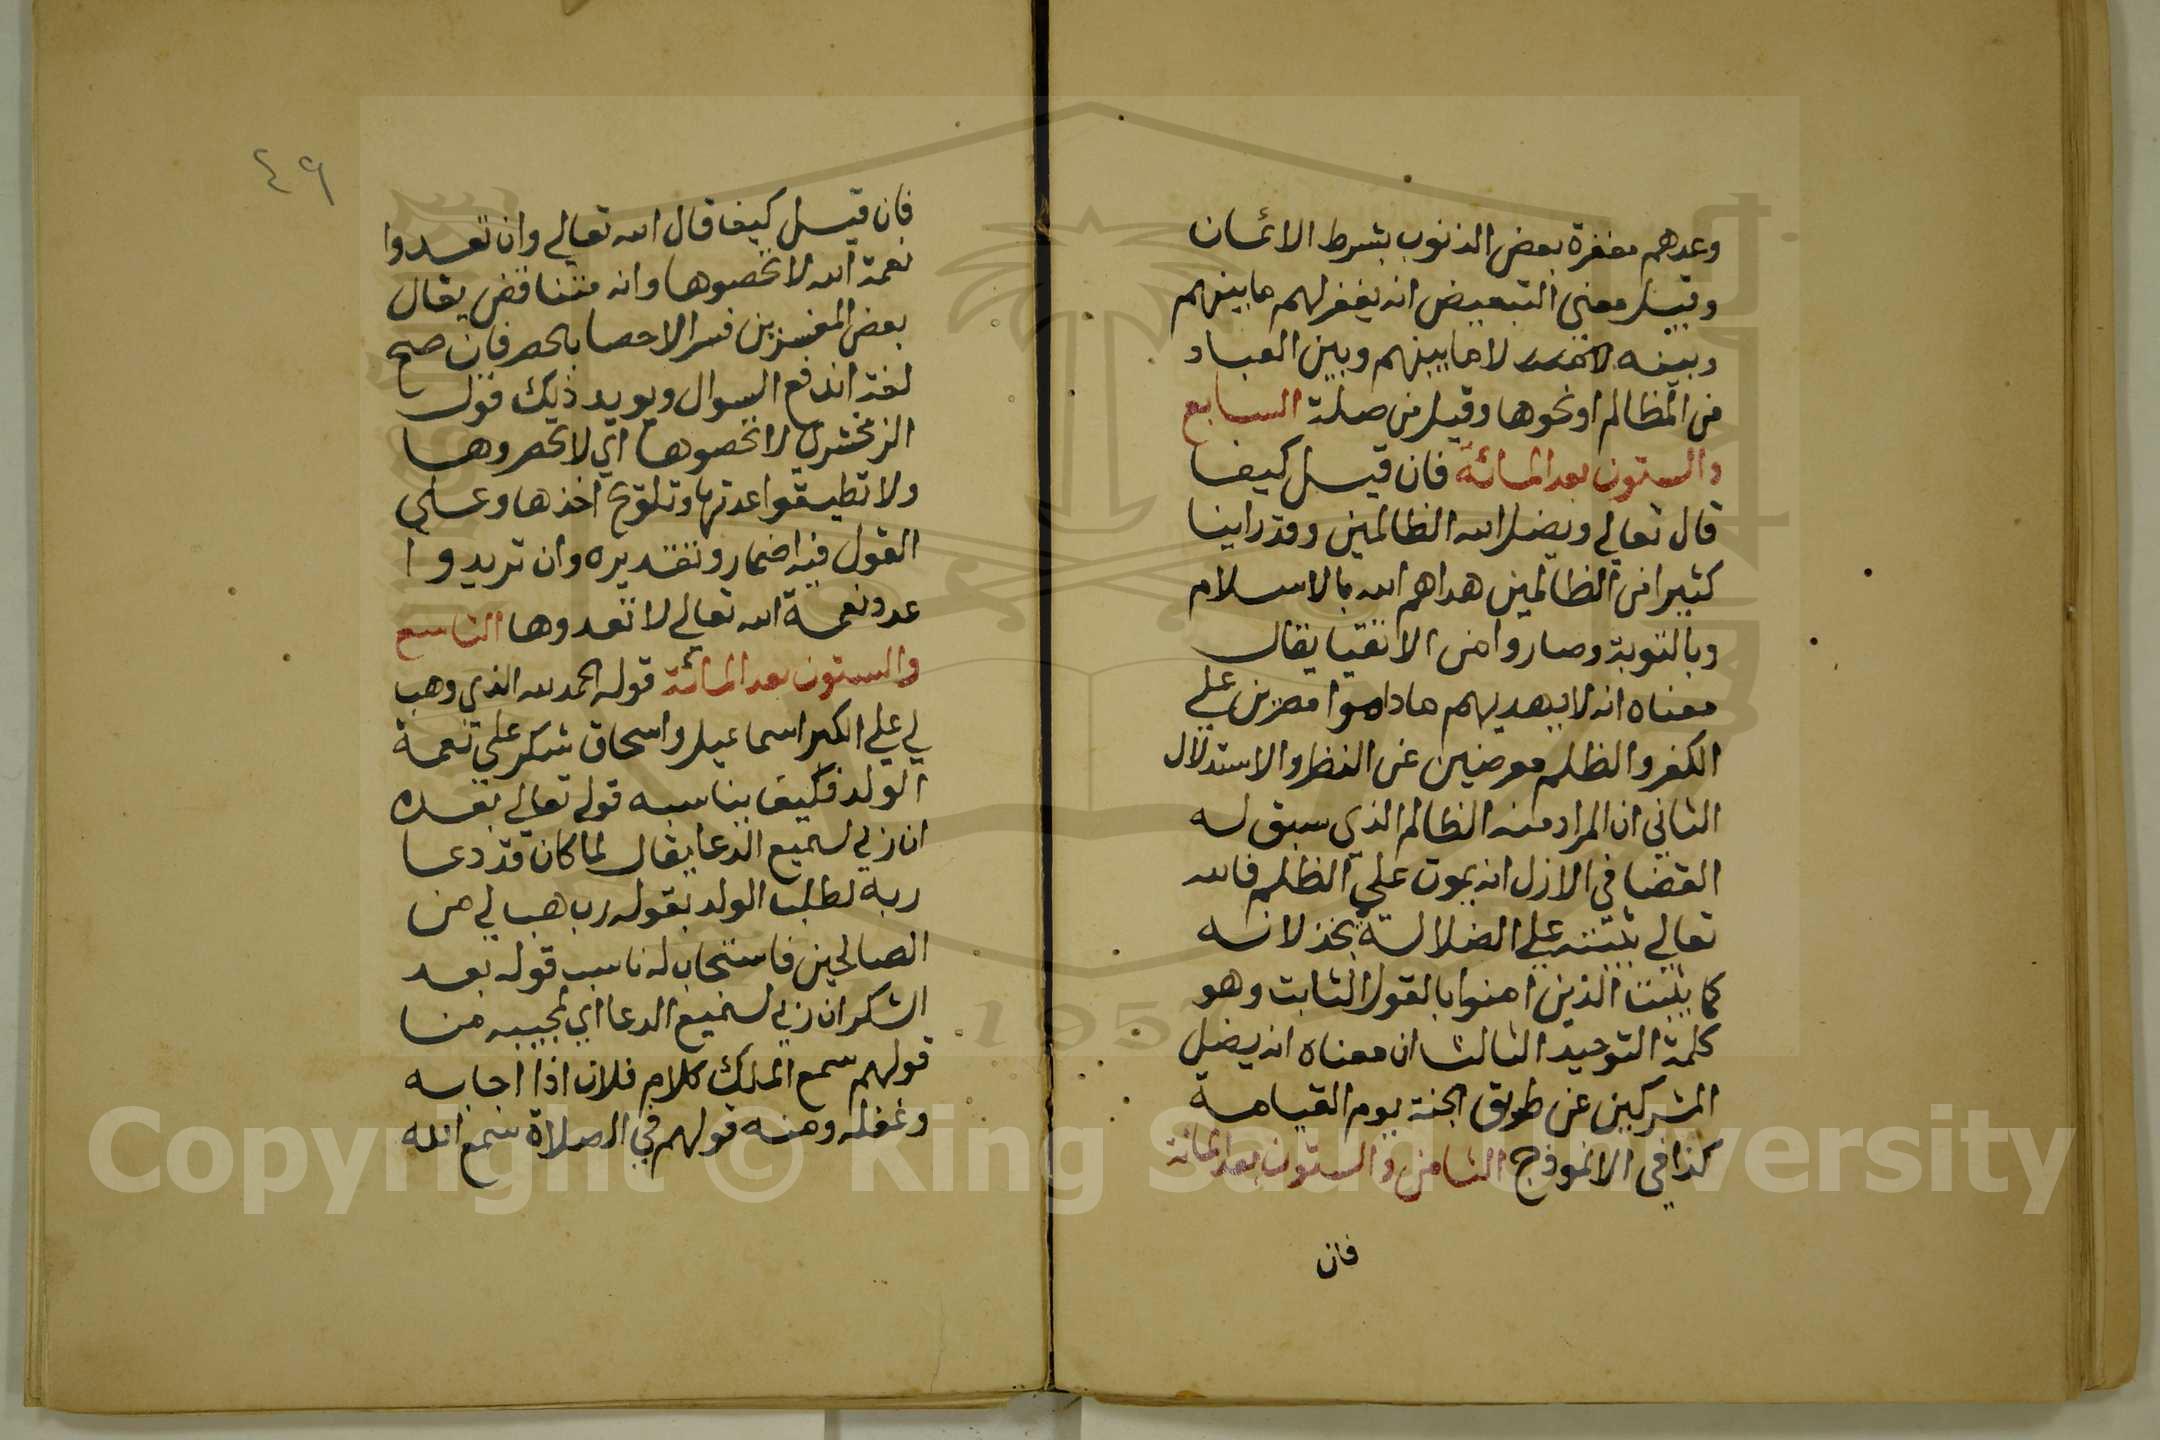 وعدهم مغفرة بعض الذنوب بشرط الائمان
وقيل معنى التبعيض انه يغفر لهم ما بينهم
وبينه لا ما بينهم وبين العباد
من المظالم او نحوها وقيل من صلة السابع
والستون بعد المائة فان قيل كيف
قال تعالي ويضل الله الظالمين وقد راينا
كثيرا من الظالمين هداهم الله بالاسلام
وبالتوبة وصاروا من الاتقيا يقال
معناه انه لا يهديهم ما داموا مصرين علي
الكفر والظلم معرضين عن النظر والاستدلال
الثاني ان المراد منه الظالم الذي سبق له
القضا في الازل انه يموت علي الظلم فالله
تعالي يثبته علي الضلالة بخذلانه
كما يثبت الذين امنوا بالقول الثابت وهو
كلمة التوحيد الثالث ان معناه انه يضل
المشركين عن طريق الجنة يوم القيامة
كذا في الانموذج الثامن والستون بعد المائة
فان
٤٩
فان قيل كيف قال الله تعالي وان تعدوا
نعمة الله لا تحصوها وانه متناقض يقال
بعض المفسرين فسر الاحصا بالحصر فان صح
لغة اندفع السوال ويويد ذلك قول
الزمخشري لا تحصوها اي لا تحصروها
ولا تطيقوا عدتها وتلوح اخذها وعلي
القول فيه اضمار وتقديره وان تريدوا
عد نعمة الله تعالي لا تعدوها التاسع
والستون بعد المائة قوله الحمد لله الذي وهب
لي علي الكبر اسماعيل واسحاق شكر علي نعمة
الولد فكيف يناسبه قوله تعالي بعده
ان ربي لسميع الدعا يقال لما كان قد دعا
ربه لطلب الولد بقوله رب هب لي من
الصالحين فاستجاب له ناسب قوله بعد
الشكر ان ربي لسميع الدعا اي لمجيبه من
قولهم سمع الملك كلام فلان اذا اجابه
وغفله ومنه قولهم في الصلاة سمع الله
1957
Copyright © King Saud University